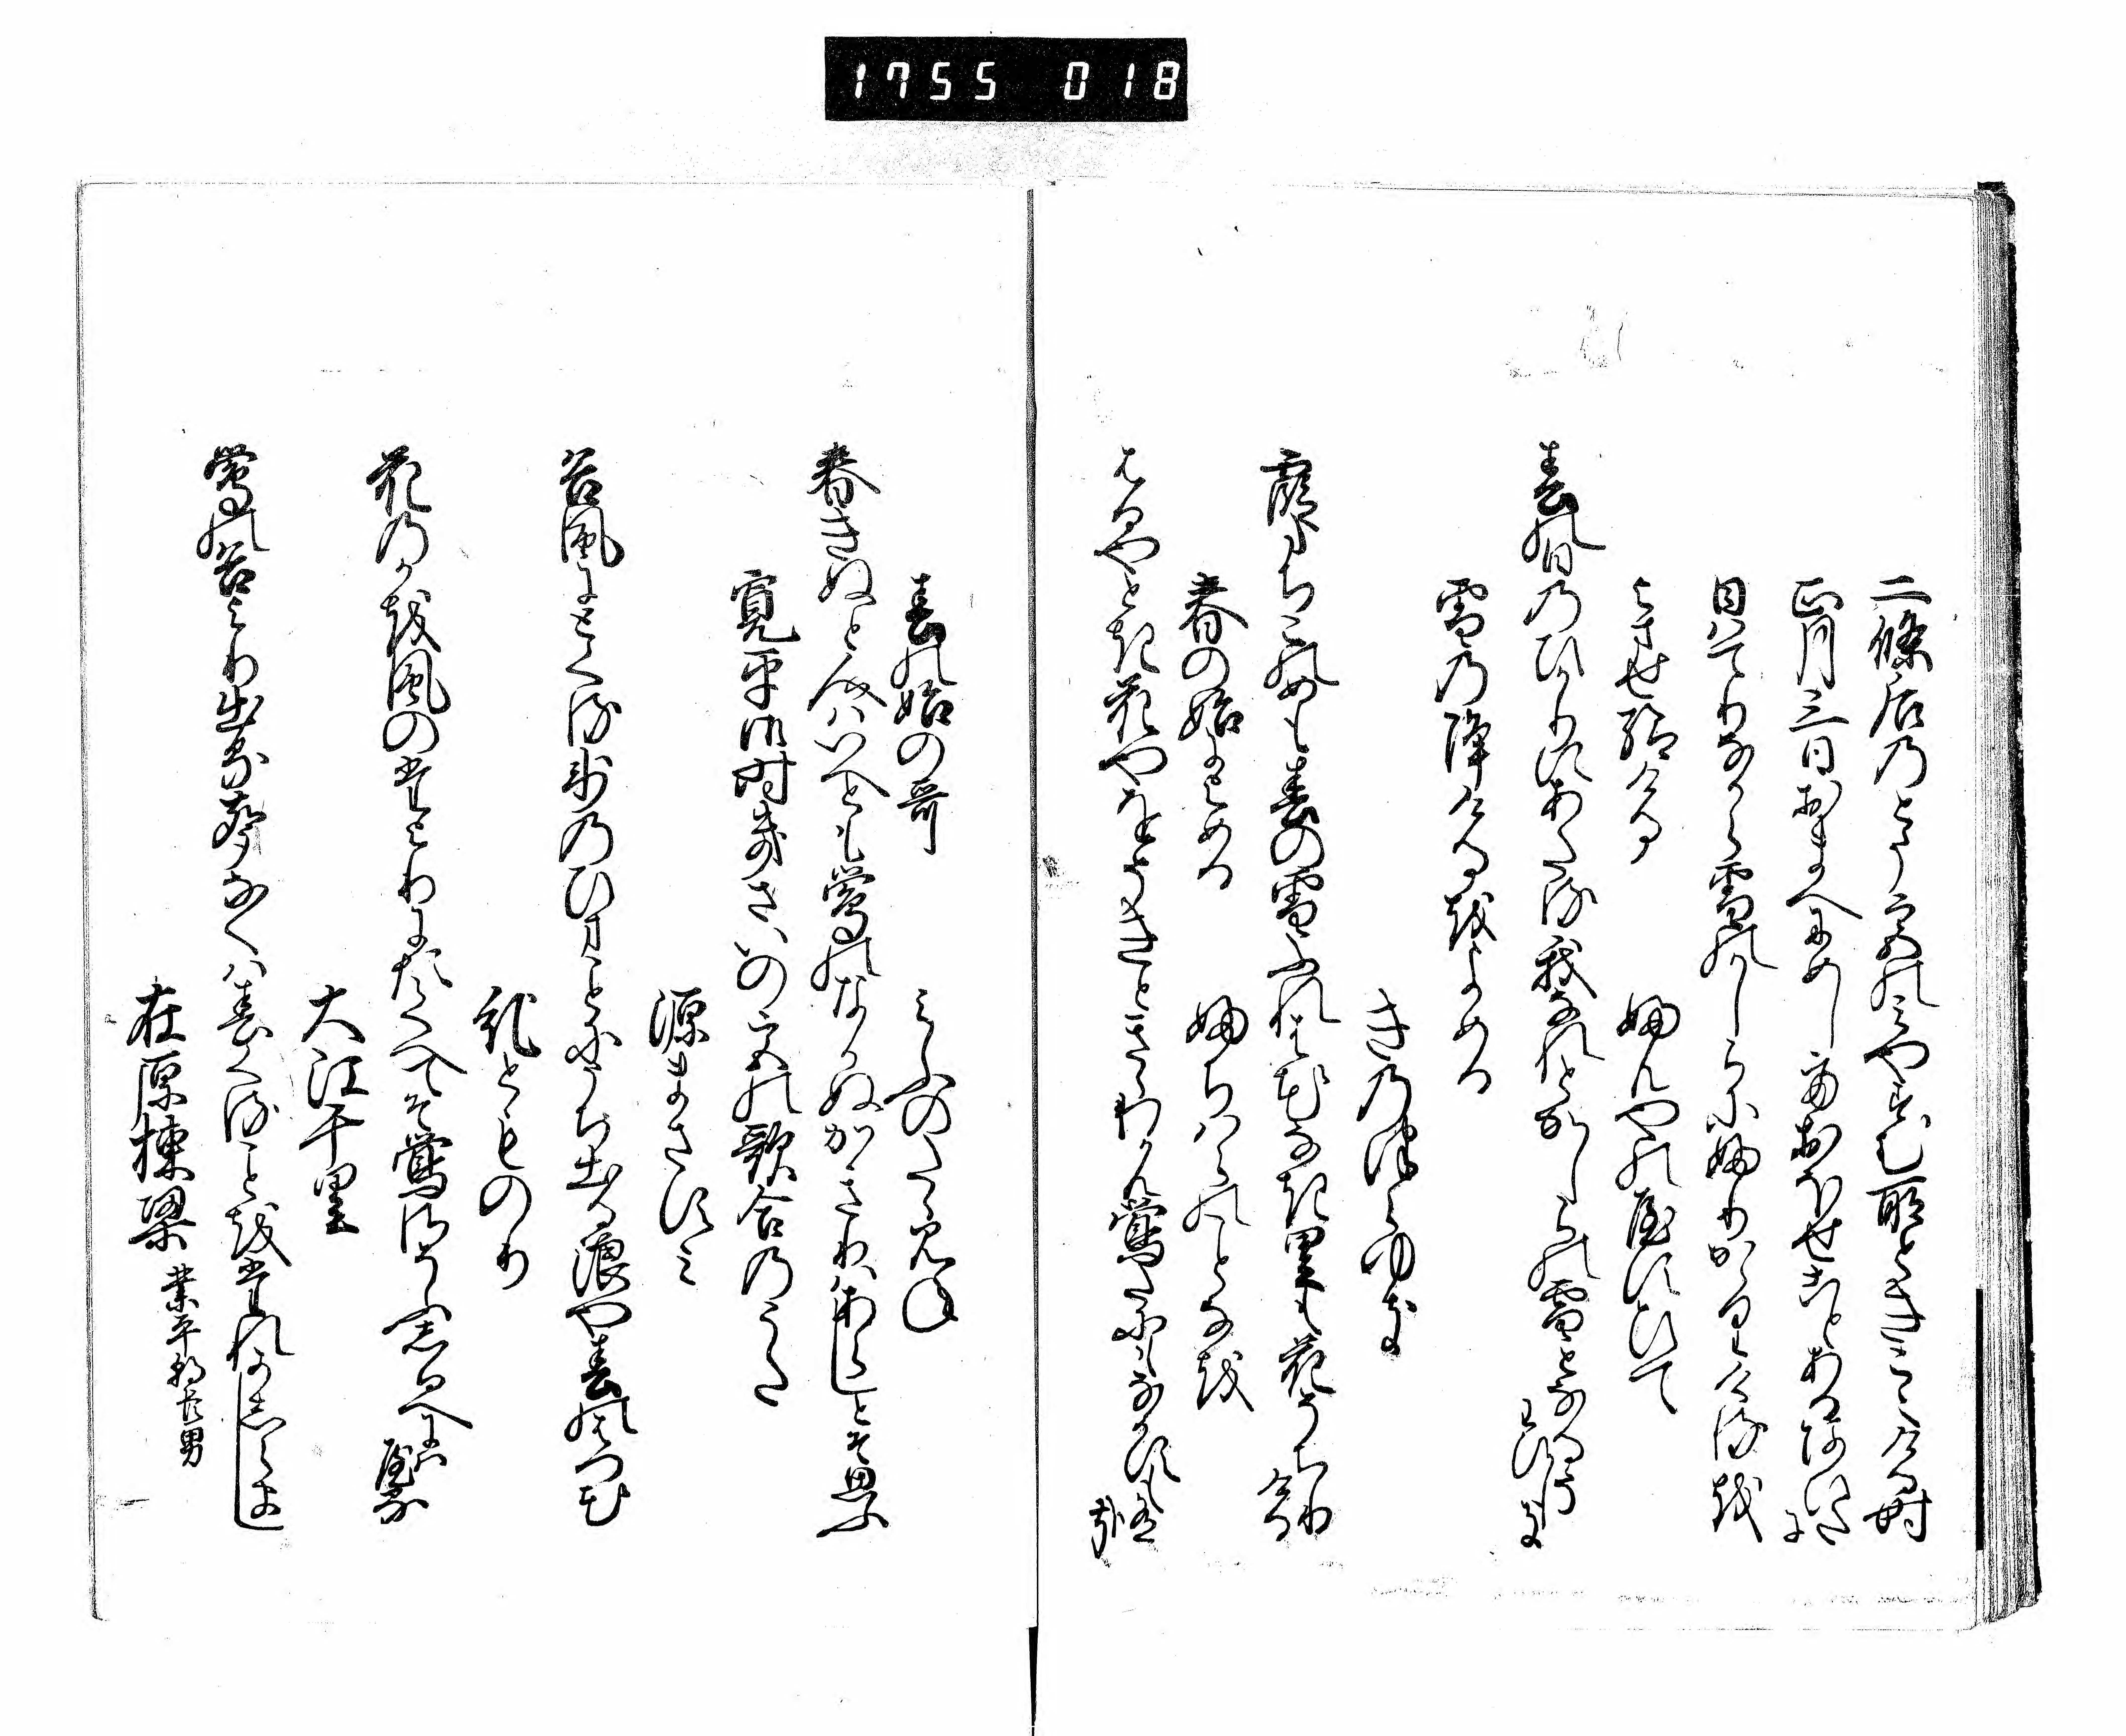 1755 018
二條后乃とう宮のみやす む所ときこえける時
正月三日おまへにめしておほせことあるあひたに
日はてりなから雪のかしらにふりかゝりけるを
よませ給ける
ふんやのやすひて
春の日乃ひかりにあたる我なれとかしらの雪となるそわひしき
雪乃降けるをよめる
きのつらゆき
霞たちこのめも春の雪ふれは花なき里も花そちりける
春の始によめる
ふちはらのことなを
はるやとき花やをそきときゝわかん鶯たにもなかすもある哉
春の始の哥
みふのたゝみね
春きぬと人はいへとも鶯のなかぬかきりはあらしとそ思ふ
寛平御時きさいの宮の歌合のうた
源まさすみ
谷風にとくる氷乃ひまことにうち出る浪や春のはつ花
紀とものり
花乃かを風のたよりにたくへてそ鶯さそふしるへにはやる
大江千里
鶯の谷より出る声なくは春くることをたれかしらまし
在原棟梁 業平朝臣男